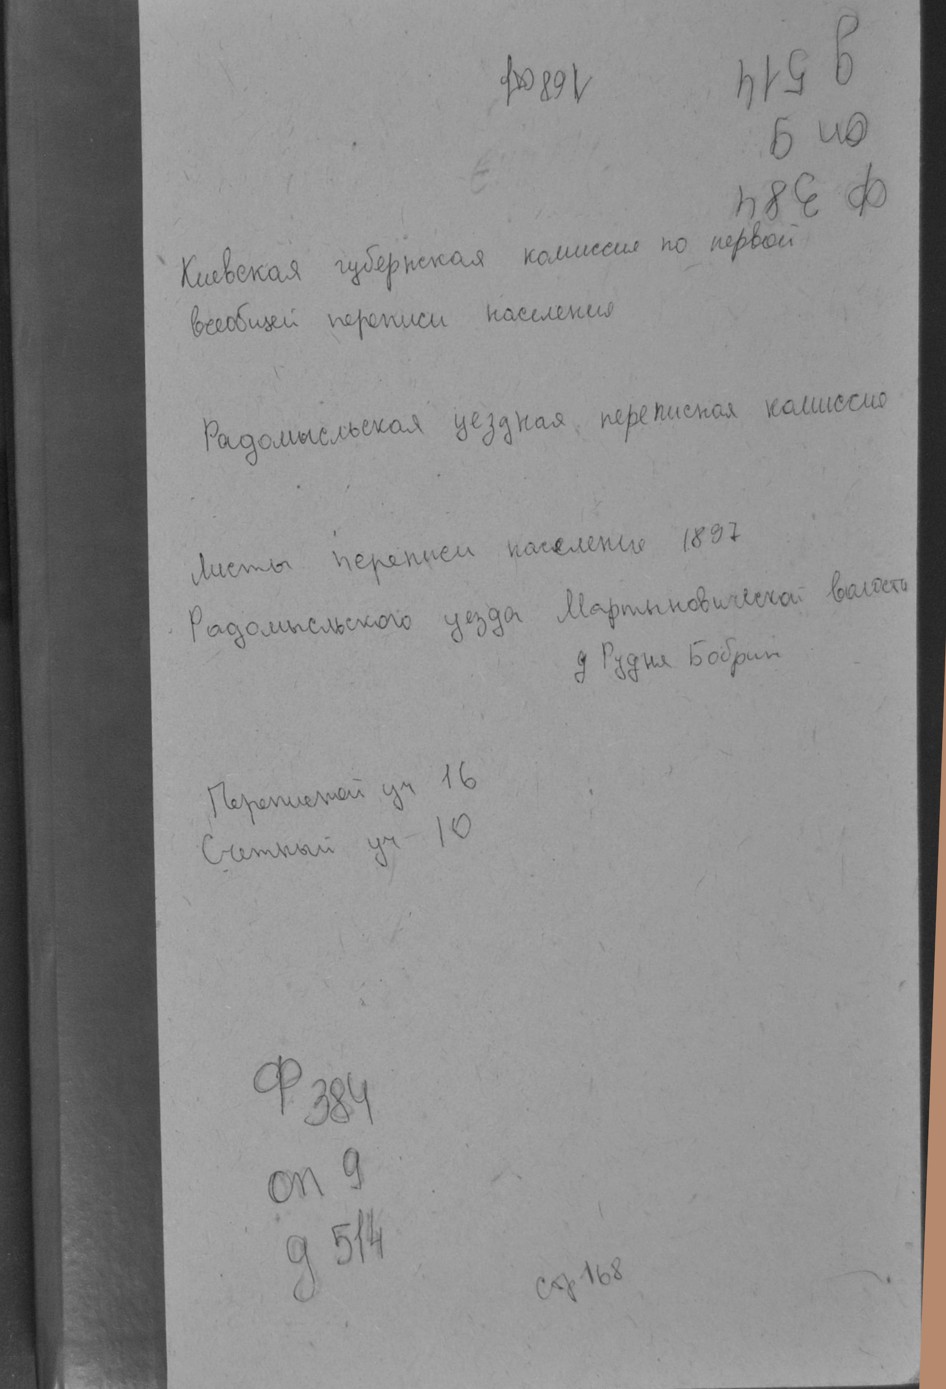 д 514
168 стр
оп 9
ф 384
Киевская губернская комиссия по первой
всеобщей переписи населения
Радомысльская уездная переписная комиссия
Листы переписи населения 1897
Радомысльского уезда Мартыновической волости
д Рудня Бобрин
Переписной уч 16
Счетный уч 10
Ф 384
оп 9
д 514
стр 168